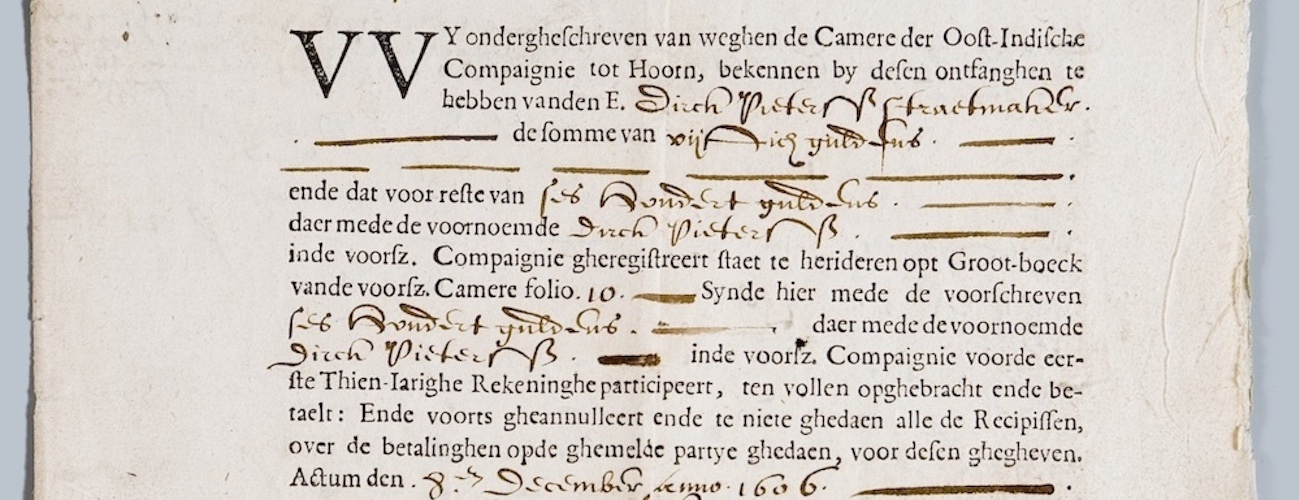 VVY ondergheſchreven van weghen de Camere der Ooſt-Indiſche
Compaignie tot Hoorn, bekennen by deſen ontfanghen te
hebben vanden E. Dirck Pietersß ſtraetmaker.
de ſomme van vijftich guldens.
ende dat voor reſte van ſes Hondert guldens.
daer mede de voornoemde Dirck Pietersß.
inde voorſz. Compaignie gheregiſtreert ſtaet te herideren opt Groot-boeck
vande voorſz. Camere folio. 10. Synde hier mede de voorſchreven
ſes Hondert guldens. daer mede de voornoemde
Dirck Pietersß. inde voorſz. Compaignie voorde eer-
ſte Thien-Iarighe Rekeninghe participeert, ten vollen opghebracht ende be-
taelt: Ende voorts gheannulleert ende te niete ghedaen alle de Recipiſſen,
over de betalinghen opde ghemelde partye ghedaen, voor deſen ghegheven.
Actum den. 8en December anno. 1606.